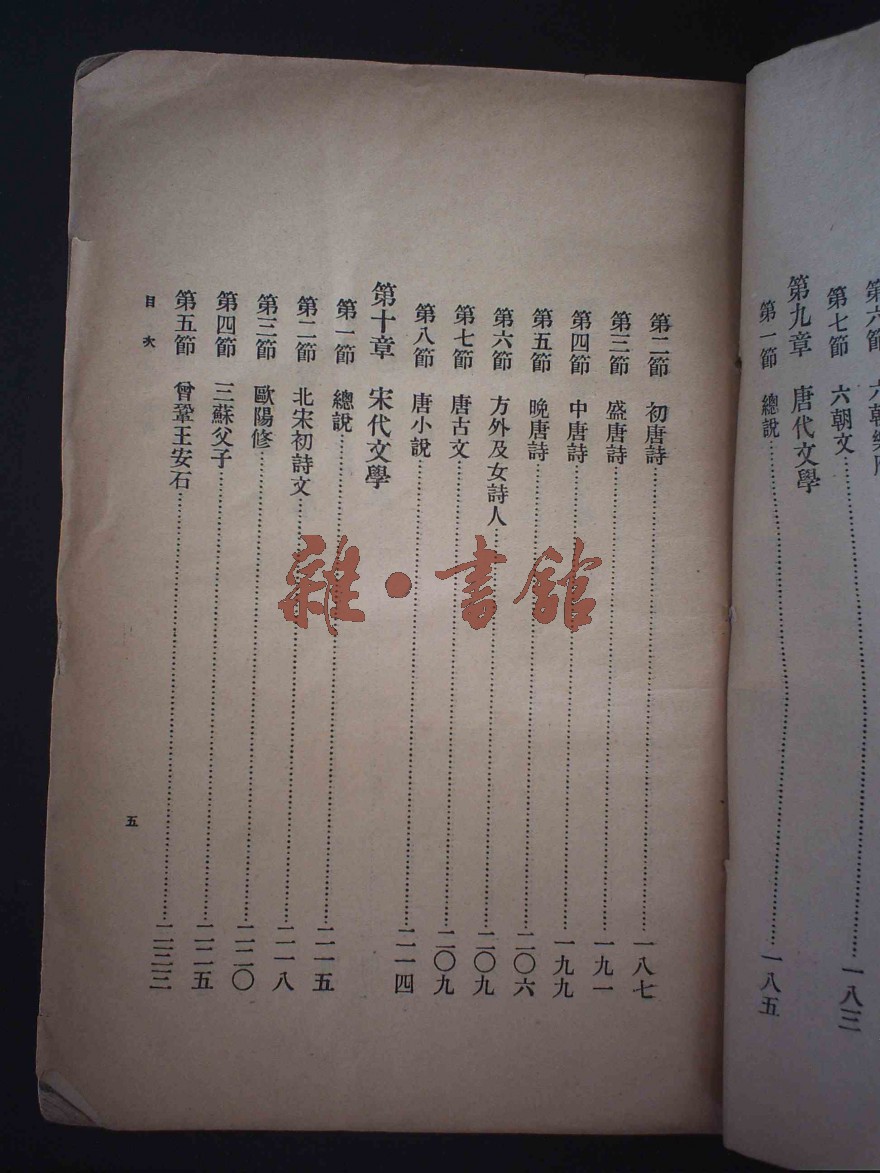 第六節 六朝樂府
第七節 六朝文……一八三
第九章 唐代文學
第一節 總說……一八五
第二節 初唐詩……一八七
第三節 盛唐詩……一九一
第四節 中唐詩……一九九
第五節 晚唐詩……二〇六
第六節 方外及女詩人……二〇九
第七節 唐古文……二〇九
第八節 唐小說……二一四
第十章 宋代文學
第一節 總說……二一五
第二節 北宋初詩文……二一八
第三節 歐陽修……二二〇
第四節 三蘇父子……二二五
第五節 曾鞏王安石……二三三
目次
五
雜·書館